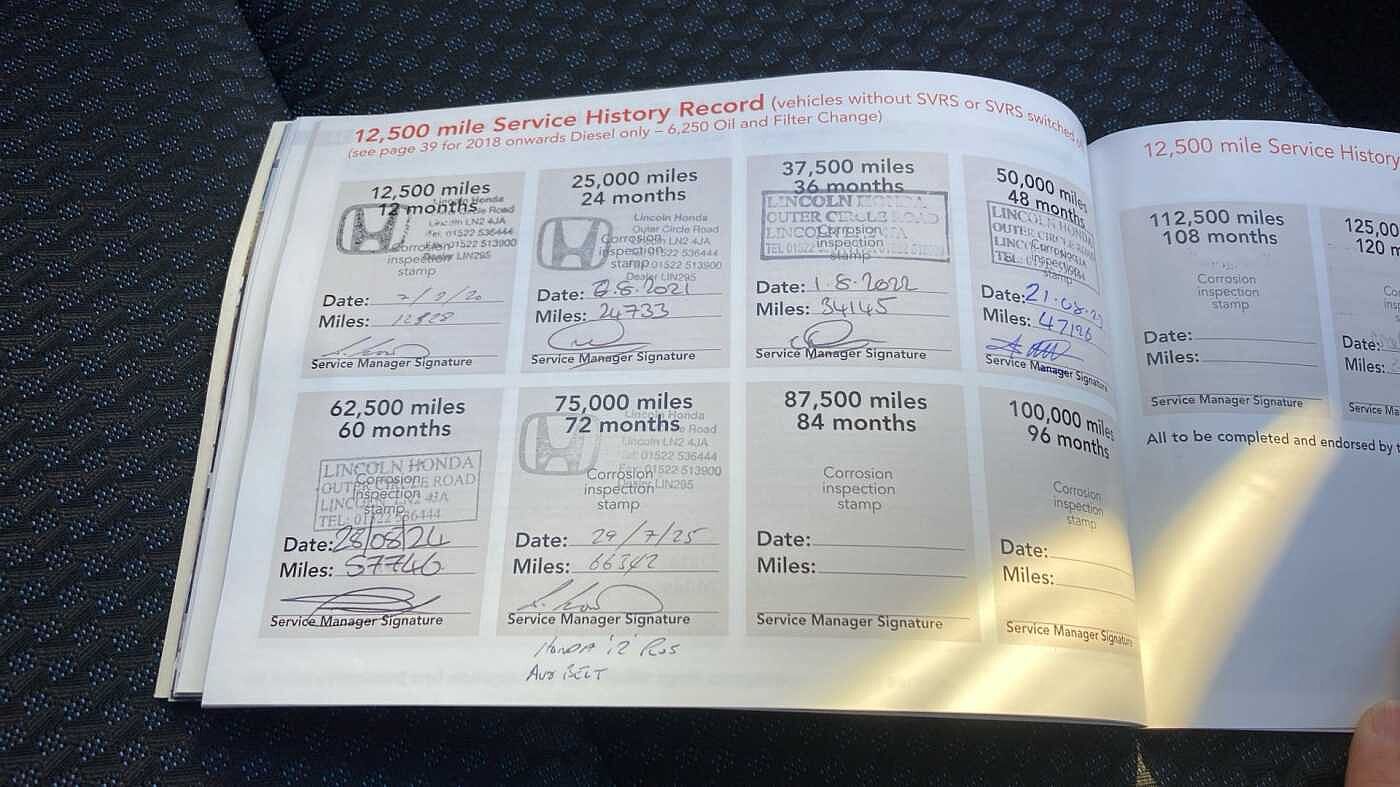 12,500 mile Service History Record (vehicles without SVRS or SVRS switched
(see page 39 for 2018 onwards Diesel only – 6,250 Oil and Filter Change)
12,500 miles
12 months
Lincoln Honda
Outer Circle Road
Lincoln LN2 4JA
Tel: 01522 536444
Fax: 01522 513900
Dealer LIN295
Corrosion
inspection
stamp
Date: 7/9/20
Miles: 12828
Service Manager Signature
25,000 miles
24 months
Lincoln Honda
Outer Circle Road
Lincoln LN2 4JA
Tel: 01522 536444
Fax: 01522 513900
Dealer LIN295
Corrosion
inspection
stamp
Date: 6.8.2021
Miles: 24733
Service Manager Signature
37,500 miles
36 months
LINCOLN HONDA
OUTER CIRCLE ROAD
LINCOLN
TEL 01522
Corrosion
inspection
stamp
Date: 1.8.2022
Miles: 34145
Service Manager Signature
50,000 miles
48 months
LINCOLN HONDA
OUTER CIRCLE
LINCOLN
TEL:
Corrosion
inspection
stamp
Date: 21.08.23
Miles: 47126
Service Manager Signature
62,500 miles
60 months
LINCOLN HONDA
OUTER CIRCLE ROAD
LINCOLN LN2 4JA
TEL: 01522 536444
Corrosion
inspection
stamp
Date: 28/08/24
Miles: 57746
Service Manager Signature
75,000 miles
72 months
Lincoln Honda
Outer Circle Road
Lincoln LN2 4JA
Tel: 01522 536444
Fax: 01522 513900
Dealer LIN295
Corrosion
inspection
stamp
Date: 29/7/25
Miles: 66342
Service Manager Signature
HONDA '12' PLUS
AUX BELT
87,500 miles
84 months
Corrosion
inspection
stamp
Date:
Miles:
Service Manager Signature
100,000 miles
96 months
Corrosion
inspection
stamp
Date:
Miles:
Service Manager Signature
12,500 mile Service History
112,500 miles
108 months
Corrosion
inspection
stamp
Date:
Miles:
Service Manager Signature
125,00
120 m
Date:
Miles:
Service Ma
All to be completed and endorsed by